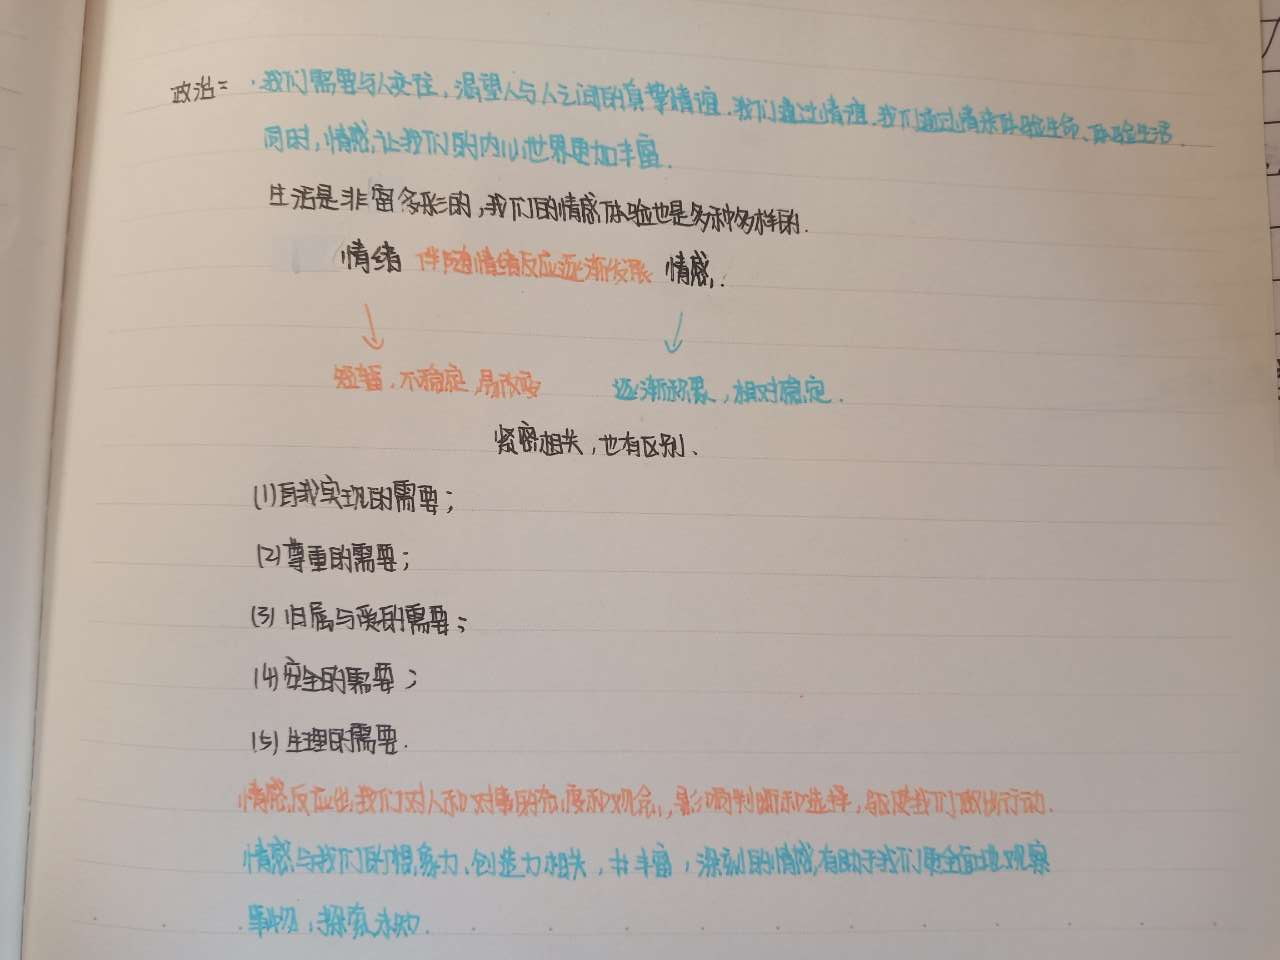 政治:·我们需要与人交往,渴望人与人之间的真挚情谊.我们通过情谊.我们通过情感体验生命、体验生活.
同时,情感,让我们的内心世界更加丰富.
生活是非富多彩的,我们的情感体验也是多种多样的.
情绪 伴随情绪反应逐渐发展 情感,.
短暂.不稳定,易改变 逐渐积累,相对稳定.
紧密相关,也有区别.
(1)自我实现的需要;
(2)尊重的需要;
(3)归属与爱的需要;
(4)安全的需要;
(5)生理的需要.
情感,反应出我们对人和对事的态度和观念,影响判断和选择,驱使我们做出行动.
情感与我们的想象力、创造力相关,丰富,深刻的情感,有助于我们更全面地观察
事物,探索未知.